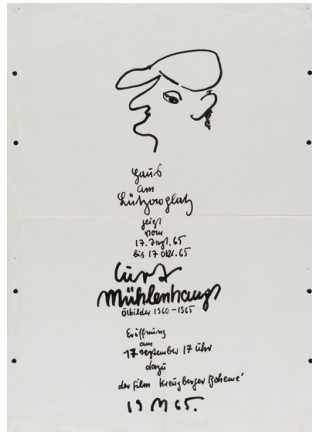 Haus
am
Lützowplatz
zeigt
vom
17. Sept. 65
bis 17 Okt. 65
Curt
Mühlenhaupt
Ölbilder 1960-1965
Eröffnung
am
17 september 17 Uhr
dazu
der Film Kreuzberger Boheme'
19 M 65.